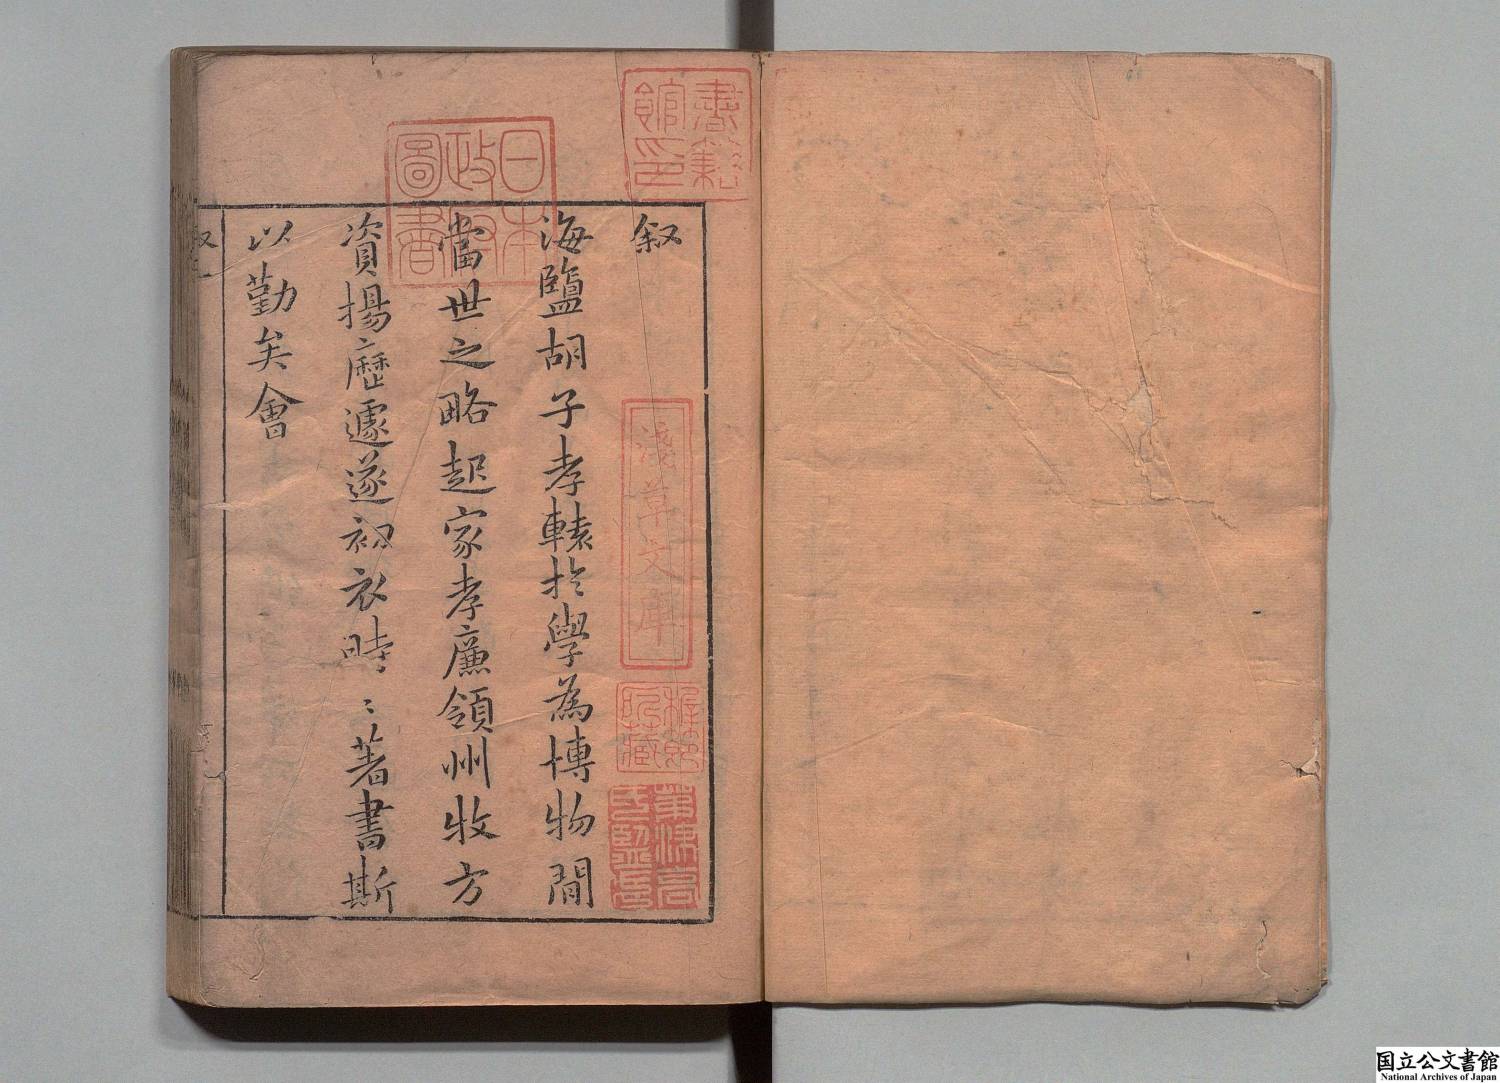 叙
海鹽胡子孝轅於學為博物閒
當世之略起家孝廉領州牧方
資揚歷遽遂初衣時〻著書斯
以勤矣會
叙
一
書籍館印
日本政府圖書
淺草文庫
国立公文書館
National Archives of Japan